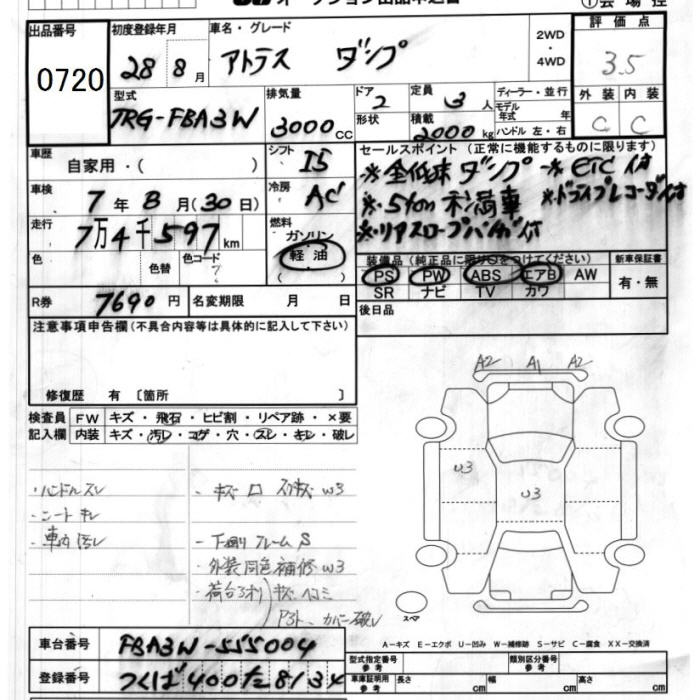 出品番号
0720
初度登録年月
28年 8月
車名・グレード
アトラス ダンプ
2WD
・
4WD
評価点
3.5
型式
TRG-FBA3W
排気量
3000cc
ドア
2
形状
定員
3人
積載
2000kg
ディーラー・並行
モデル
年式 年
ハンドル 左・右
外装 内装
C C
車歴
自家用・( )
シフト
I5
車検
7年8月(30日)
冷房
AC
走行
7万4千597km
燃料
ガソリン
軽油
( )
色
色替
色コード
R券
7690円
名変期限 月 日
セールスポイント (正常に機能するものに限ります)
※全低床ダンプ ※ETC付
※5ton未満車 ※ドライブレコーダ付
※リアスロープバンパ付
装備品(純正品に限り○をつけてください)
新車保証書
PS PW ABS エアB AW
SR ナビ TV カワ
有・無
後日品
注意事項申告欄(不具合内容等は具体的に記入して下さい)
修復歴 有 〔箇所 〕
検査員
記入欄
FW キズ・飛石・ヒビ割・リペア跡・×要
内装 キズ・汚レ・コゲ・穴・スレ・キレ・破レ
・ハンドルスレ
・シートキレ
・車内汚レ
・下廻リフレームS
・外装同色補修W3
A2 A1 A2
W3
W3
スペア
A-キズ E-エクボ U-凹み W-補修跡 S-サビ C-腐食 XX-交換済
車台番号
FBA3W-555004
登録番号
つくば400た8134
型式指定番号
参考
類別区分番号
参考
車庫証明用
参考
長さ cm 幅 cm 高さ cm